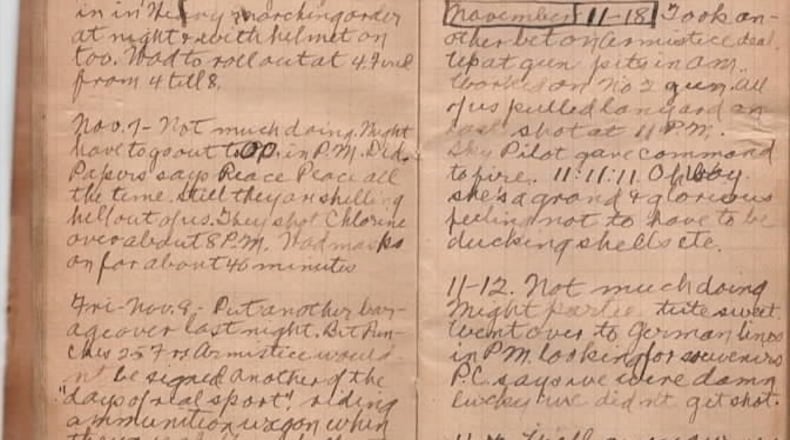 in in Heavy marching order
at night & with helmet on
too. Had to roll out at 4. Fired
from 4 till 8.
Nov. 7- Not much doing. Might
have to go out to OP. in P.M. Did.
Papers says Peace Peace all
the time, still they are shelling
hell out of us. They shot Chlorine
over about 8 P.M. Had masks
on for about 40 minutes
Fri-Nov. 8- Put another bar-
age over last night. Bet Pun-
ches 25 Frs Armistice would-
n't be signed another of the
"days of real sport", riding
ammunition wagon when
November 11-18 Took an-
other bet on Armistice deal
up at gun pits in am.
Worked on No 2 gun. All
of us pulled lanyard on
last shot at 11 P.M.
Sky Pilot gave command
to fire. 11:11:11 Oh boy
she's a grand & glorious
feeling not to have to be
ducking shells etc.
11-12. Not much doing
Might partie tute sweet.
Went over to German lines
in P.M. looking for souvenirs
P.C. says we were damn
lucky we didn't get shot.